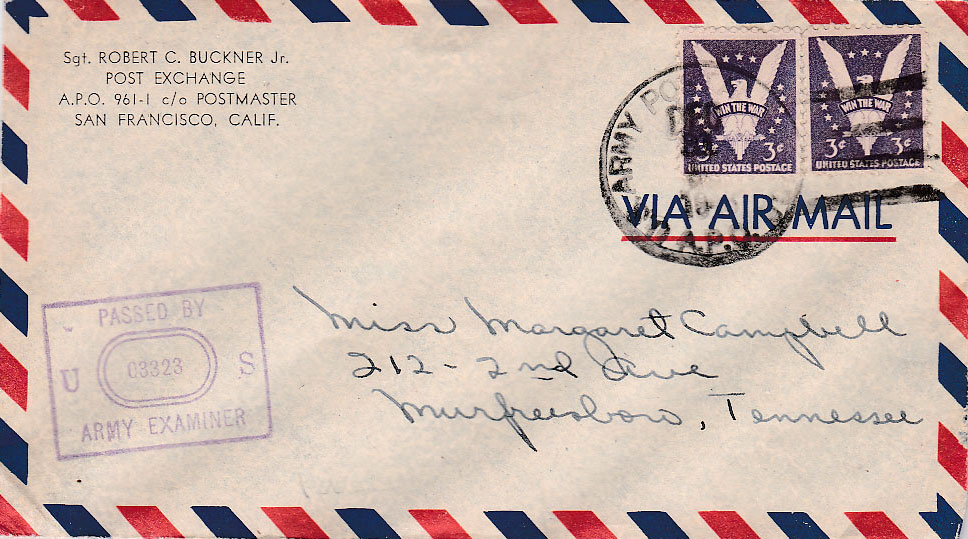 Sgt. ROBERT C. BUCKNER Jr.
POST EXCHANGE
A.P.O. 961-1 c/o POSTMASTER
SAN FRANCISCO, CALIF.
WIN THE WAR
3¢ 3¢
UNITED STATES POSTAGE
WIN THE WAR
3¢ 3¢
UNITED STATES POSTAGE
ARMY
DEC
A.P.O.
VIA AIR MAIL
PASSED BY
U 03323 S
ARMY EXAMINER
Miss Margaret Campbell
212-2nd Ave
Murfreesboro, Tennessee